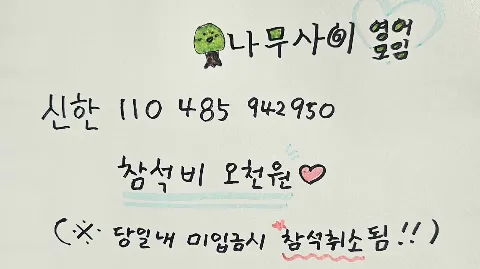 나무사이 영어모임
신한 110 485 942950
참석비 오천원
(※ 당일내 미입금시 참석취소됨!!)